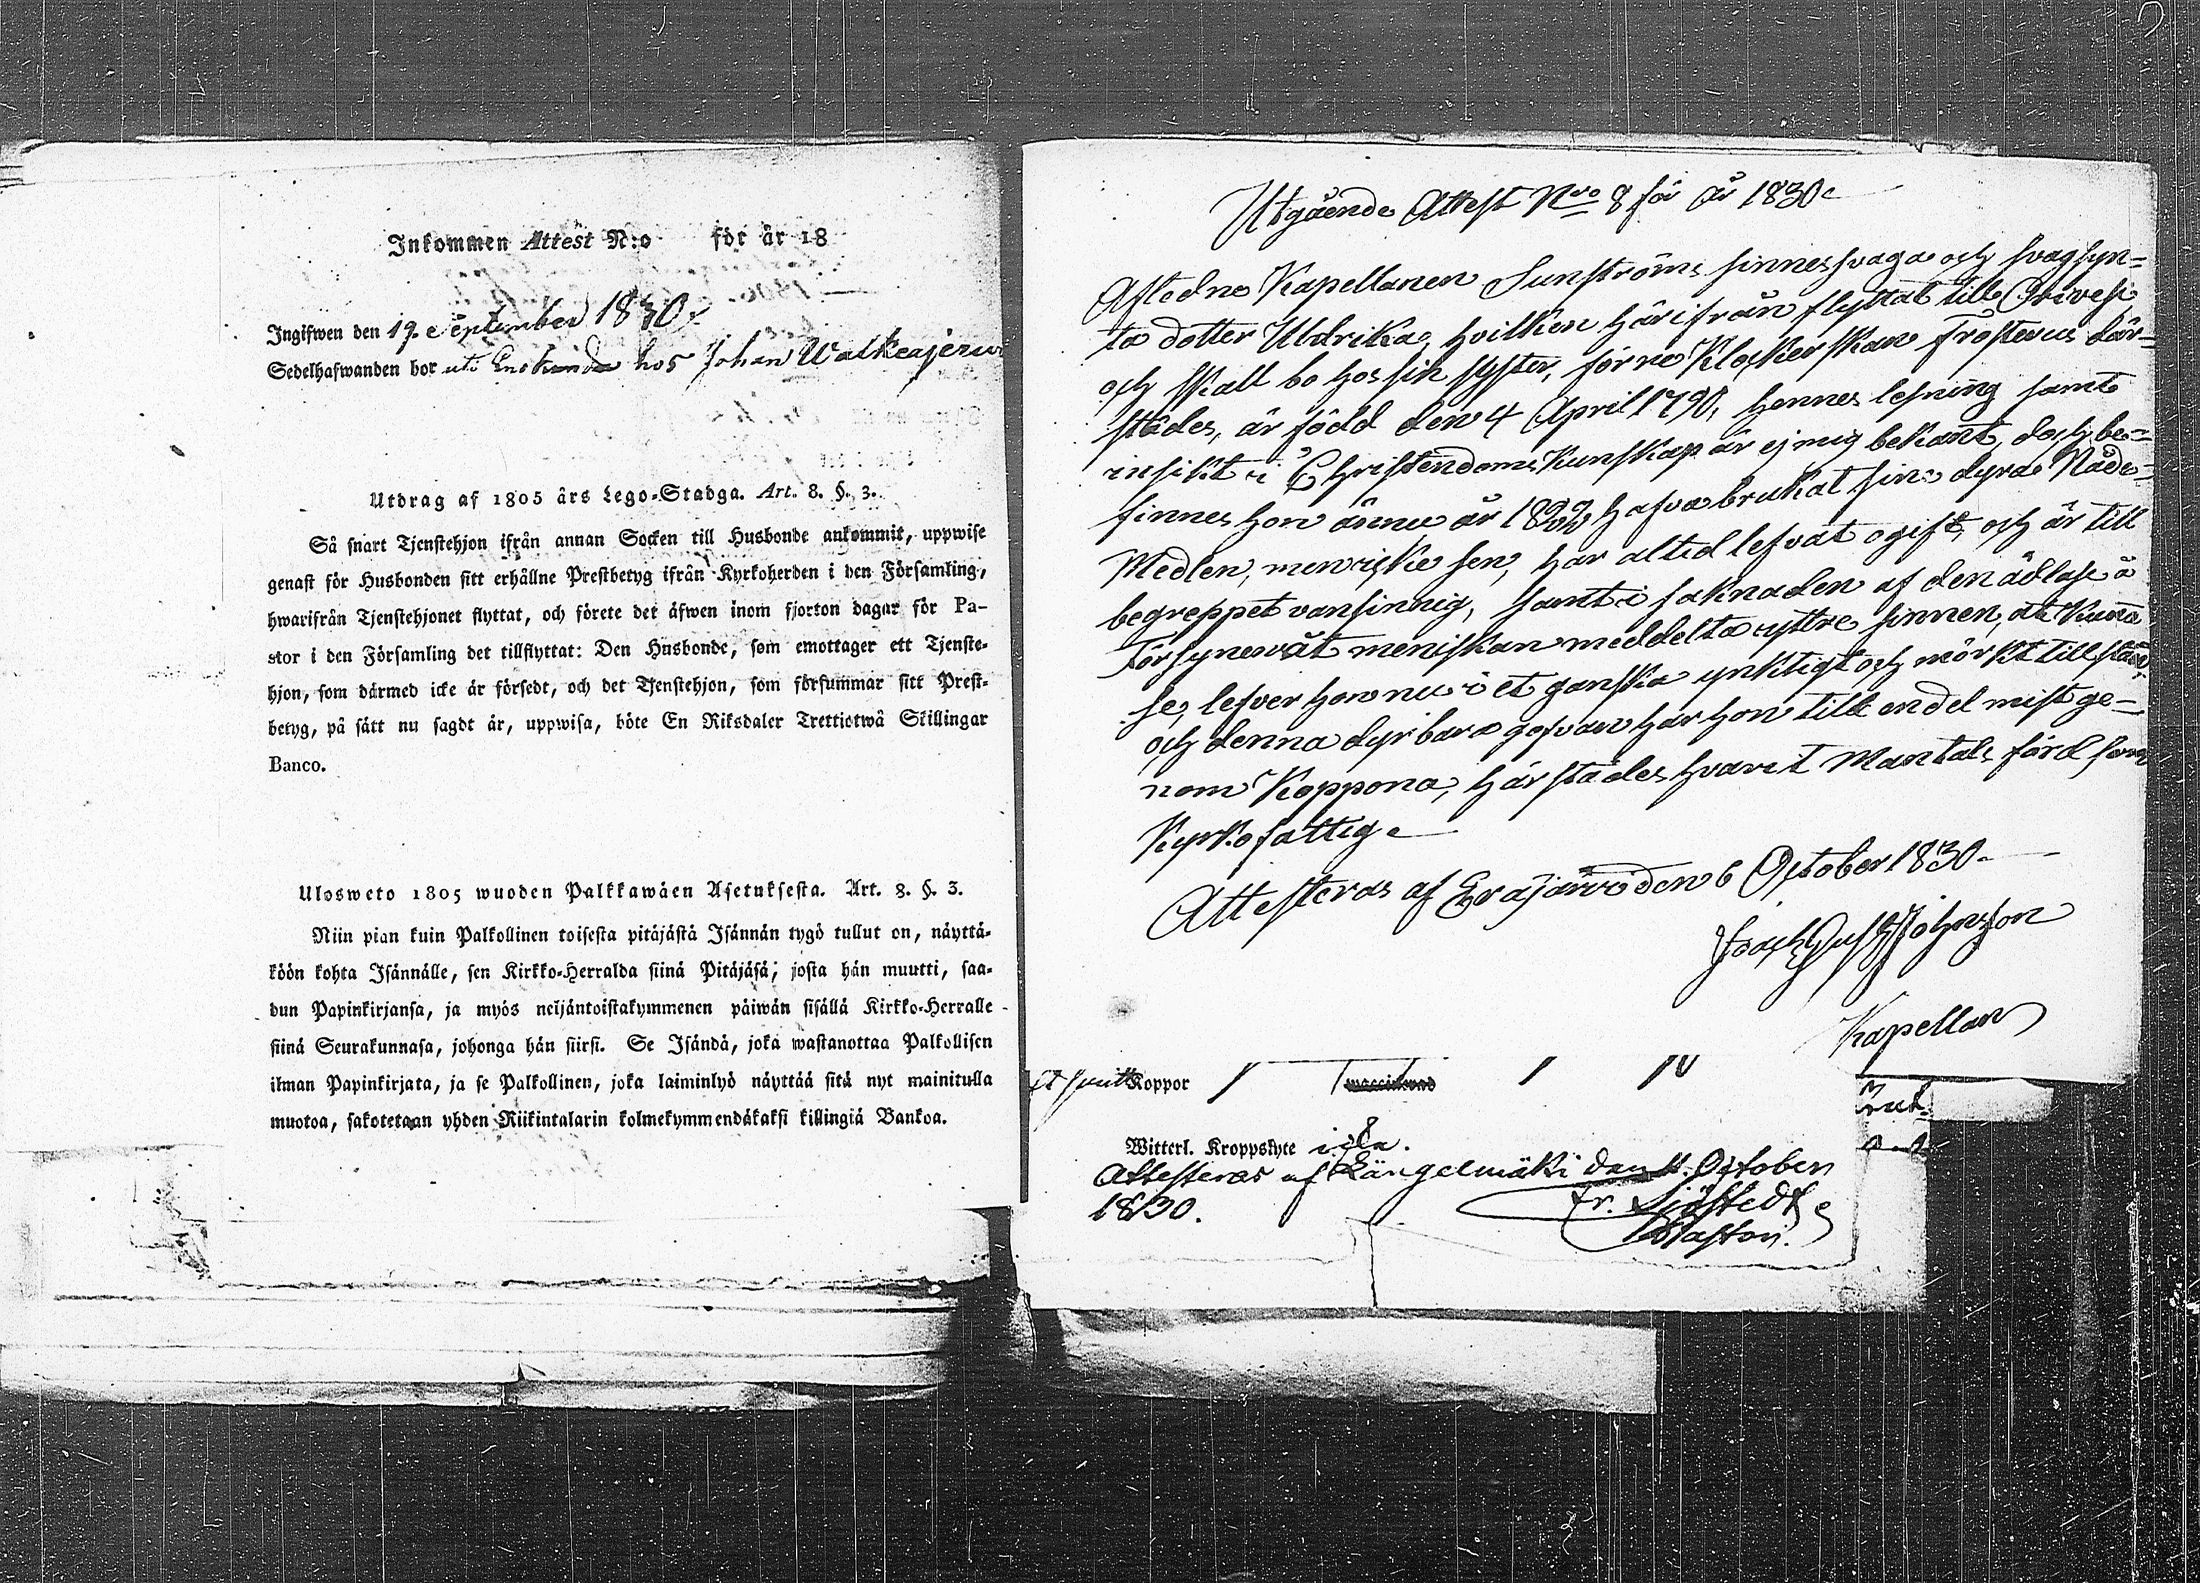 Inkommen Attest N:o för år 18
Ingifwen den 19. September 1830.
Sedelhafwanden bor uti hos Johan Walkeajerwi
Utdrag af 1805 års Lego-Stadga. Art. 8. §. 3.
Så snart Tjenstehjon ifrån annan Socken till Husbonde ankommit, uppwise
genast för Husbonden sitt erhållne Prestbetyg ifrån Kyrkoherden i den Församling,
hwarifrån Tjenstehjonet flyttat, och förete det äfwen inom fjorton dagar för Pa-
stor i den Församling det tillflyttat: Den Husbonde, som emottager ett Tjenste-
hjon, som därmed icke är försedt, och det Tjenstehjon, som försummar sitt Prest-
betyg, på sätt nu sagdt är, uppwisa, böte En Riksdaler Trettiotwå Skillingar
Banco.
Ulosweto 1805 wuoden Palkkawäen Asetuksesta. Art. 8. §. 3.
Niin pian kuin Palkollinen toisesta pitäjästä Isännän tygö tullut on, näyttä-
köön kohta Isännälle, sen Kirkko-Herralda siinä Pitäjäsä, josta hän muutti, saa-
dun Papinkirjansa, ja myös neljäntoistakymmenen päiwän sisällä Kirkko-Herralle
siinä Seurakunnasa, johonga hän siirsi. Se Isändä, joka wastanottaa Palkollisen
ilman Papinkirjata, ja se Palkollinen, joka laiminlyö näyttää sitä nyt mainitulla
muotoa, sakotetaan yhden Riikintalarin kolmekymmendäkaksi killingiä Bankoa.
Utgående Attest Nro 8 för år 1830.
Afledne Kapellanen Sunströms sinnessvaga och svagsyn=
ta dotter Ulrika, hvilken härifrån flyttat till Orivesi
och skall bo hos sin syster, förne Klockerskan Frosterus där=
städes, är född den 4 April 1790, hennes lesning samt
insikt i Christendoms Kunskap är ej mig bekant, doch be=
finnes hon ännu år 1822 hafva brukat sine dyra Nåde=
Medlen, men icke sen, har altid lefvat ogift, och är till
begreppet vansinnig, samt i saknaden af den ädlaste å
Försynen åt meniskan meddelta yttre sinnen, at kuna
se, lefver hon nu i et ganska ynkligt och mörkt tillstånd,
och denna dyrbara gofvan har hon till en del mist ge=
nom Koppona, härstädes hvarit Mantals förd som
Kyrkofattig.
Attesteras af Eräjärvi den 6 October 1830.
Johnsson
Kapellan
Koppor
Witterl. Kroppslyte icke.
Attesteras af Längelmäki den 11. October
1830. Fr. Sjöstedt
Pastor.